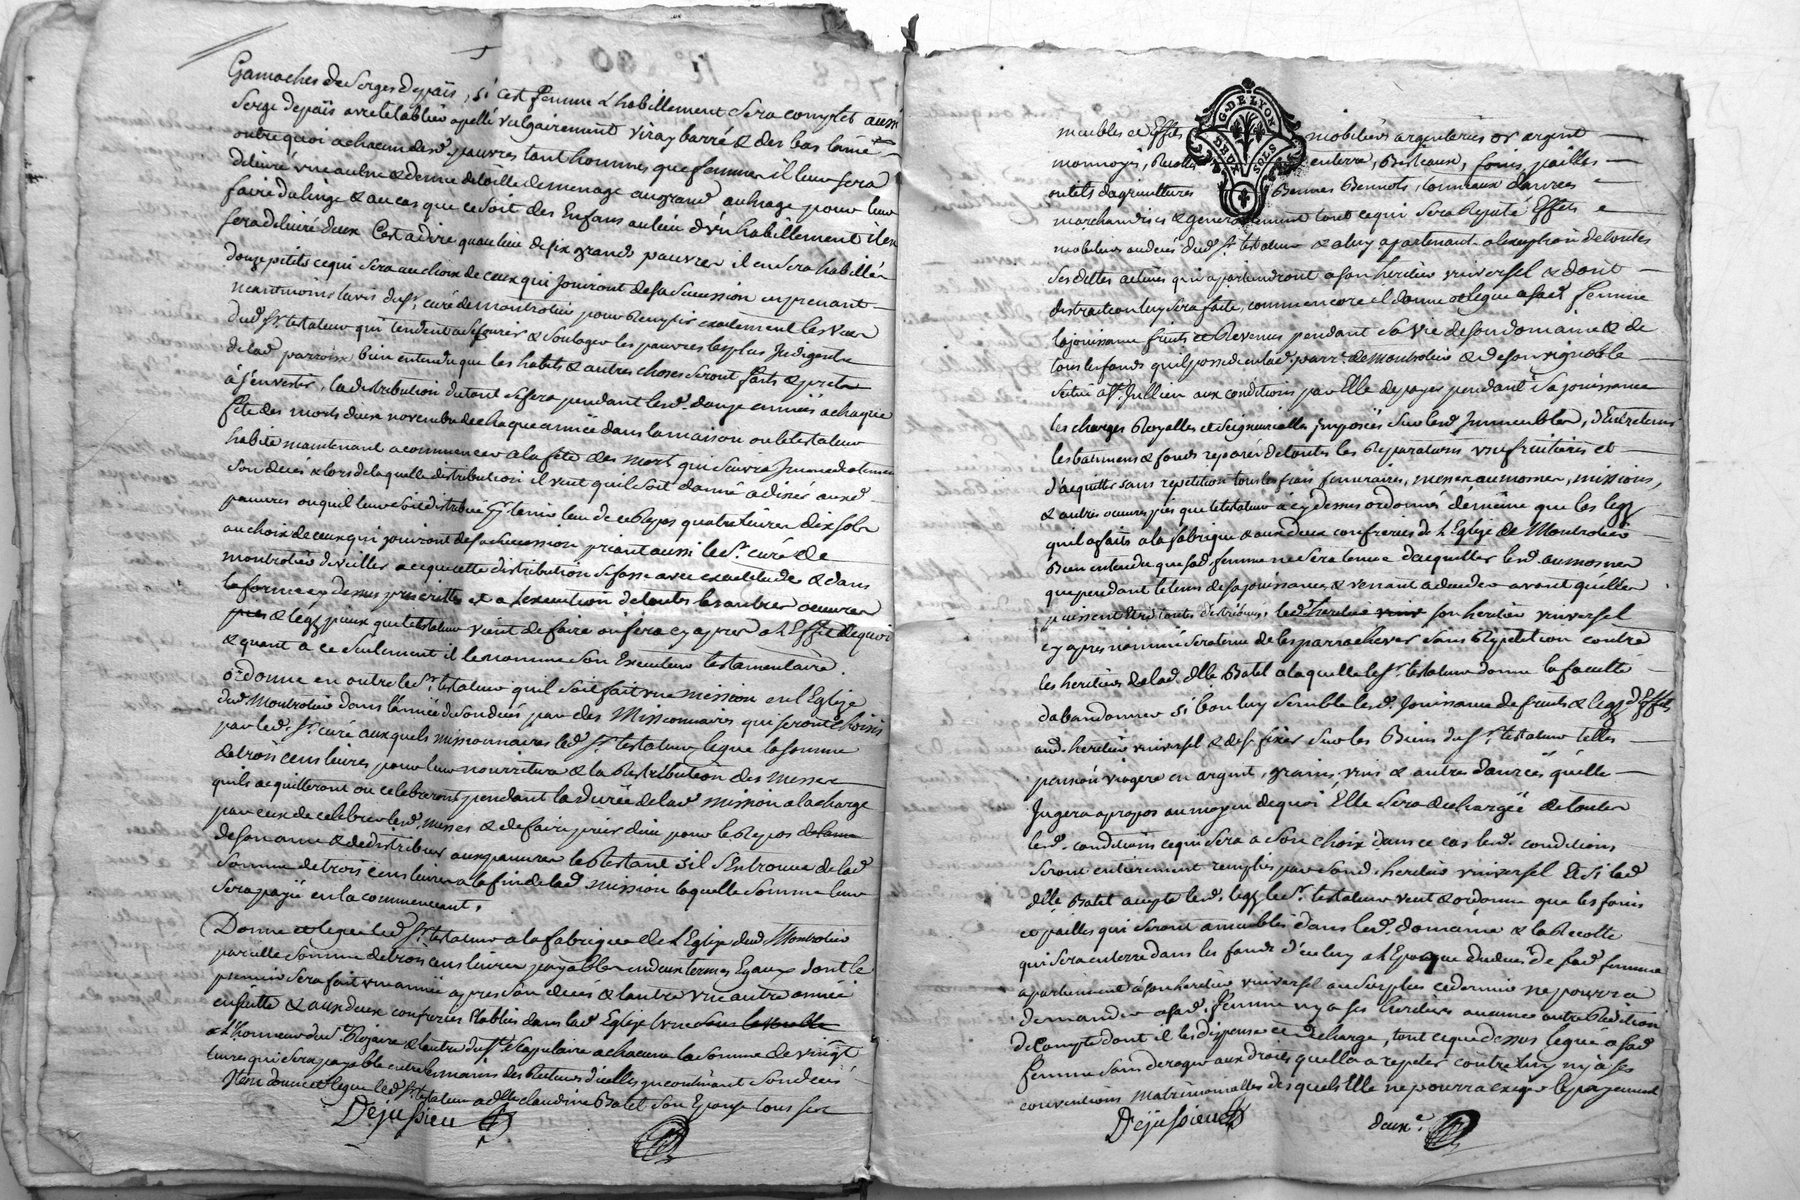 Gamaches de Serges depaïs, si c'est femme l'habillement sera complet aussi
Serge depaïs avec le tablier apellé vulgairement viray barré & des bas laine
outre quoi a chacun desd. pauvres tant hommes que femmes il leur sera
delivré une aulne & demie de toille de menage au grand aulnage pour leur
faire du linge & au cas que ce soit des Enfans au lieu d'un habillement il en
sera delivré deux C'est a dire qu'au lieu de six grands pauvres il en sera habillés
douze petits ce qui sera au choix de ceux qui Jouiront de sa Sucession en prenant
neantmoins l'avis du Sr. curé de montrotier pour Remplir exactement les vœux
dud. Sr. testateur qui tendent a secourir & soulager les pauvres les plus Jndigents
de lad. parroisse bien entendu que les habits & autres choses seront faits & prets
à s'en vestir, la distribution du tout se fera pendant lesd. douze années a chaque
fête des morts deux novembre de chaque année dans la maison ou le testateur
habite maintenant a commencer a la fête des morts qui suivra Jmmediatement
son decés & lors de laquelle distribution il veut qu'il soit donné a diner auxd.
pauvres ou qu'il leur soit distribué pour tenir lieu de ce Repas quatre livres dix sols
au choix de ceux qui jouiront de sa sucession priant aussi led. Sr. curé de
montrotier de veiller a ce que cette distribution se fasse avec exactitude & dans
la forme cy dessus prescritte et a l'execution de toutes les autres oeuvres
pies & legs pieux que le testateur vient de faire ou fera cy apres a l'Effet de quoi
& quant a ce seulement il le nomme son Executeur testamentaire.
Ordonne en outre led. Sr. testateur qu'il soit fait une mission en l'Eglise
dud. Montrotier dans l'année de son decés par des Missionnaires qui seront choisis
par led. Sr. curé auxquels missionnaires led. Sr. testateur legue la somme
de trois cens livres pour leur nourriture & la Retribution des messes
qu'ils acquitteront ou celebreront pendant la durée de lad. mission a la charge
par eux de celebrer lesd. messes & de faire prier dieu pour le Repos de l'ame
de son ame & de distribuer aux pauvres le Restant s'il s'En trouve de lad.
somme de trois cens livres a la fin de lad. mission laquelle somme leur
sera payée en la commencant.
Donne et legue led. Sr. testateur a la fabrique de L'Eglise dud. Montrotier
pareille somme de trois cens livres payable en deux termes Egaux dont le
premier sera fait une année apres son decés & l'autre une autre année
ensuitte & aux deux confreries Etablies dans lad. Eglise l'une sous le
a L'honneur du St. Rozaire & l'autre du St. Scapulaire a chacune la somme de vingt
livres qui sera payable entre les mains des Recteurs d'icelles Jncontinant son decés
Item donne et legue led. Sr. testateur a dlle claudine Batet son Epouse tous ses
Dejussieu
G. DE LYON
DEUX SOLS
meubles et Effets mobiliers argenteries or argent
monnoyé, Recoltes enterra, Bestiaux, foins, pailles
outils d'agricultures Bennes Bennots, tonneaux danrées
marchandises & generalement tout ce qui sera Reputé Effets
mobiliers au decés dud. Sr. testateur & a luy apartenant a l'exception de toutes
ses dettes actives qui apartiendront a son heritier universel & dont
distraction luy sera faite, comme encore il donne et legue a lad. femme
la jouissance fruits et Revenus pendant sa vie de son domaine & de
tous les fonds qu'il possede en lad. parr. de Montrotier & de son vignoble
scitué a St. Jullien aux conditions par Elle de payer pendant sa jouissance
les charges Royalles et seigneurialles Jmposées sur lesd. Jmmeubles, d'Entretenir
les batimens & fonds reparés de toutes les Reparations usufruitieres et
d'acquitter sans repetition tous les frais funeraires, messes aumosnes, missions,
& autres oeuvres pies que le testateur a cy dessus ordonnés de même que les legs
qu'il a faits a la fabrique & aux deux confreries de L'Eglise de Montrotier
Bien entendu que sad. femme ne sera tenue d'acquitter lesd. aumosnes
que pendant le tems de sa jouissance & venant a deceder avant qu'elles
puissent Etre toutes distribuées, led. heritier univ son heritier universel
cy apres nommé sera tenu de les parrachever sans Repetition contre
les heritiers de lad. dlle Batet a laquelle le Sr. testateur donne la faculté
d'abandonner si bon luy semble lesd. Jouissance de fruits & legs d'Effets
aud. heritier universel & de se fixer sur les Biens du Sr. testateur telle
pension viagere en argent, graines vins & autres danrées qu'elle
Jugera a propos au moyen de quoi Elle sera dechargée de toutes
lesd. conditions ce qui sera a son choix dans ce cas lesd. conditions
seront entierement remplies par sond. heritier universel & si lad.
dlle Batet accepte lesd. legs le Sr. testateur veut & ordonne que les foins
et pailles qui seront ameublés dans lesd. domaine & la Recolte
qui sera enterra dans les fonds d'iceluy a l'Epoque du decés de sad. femme
apartiennent a son heritier universel au surplus ce dernier ne pourra
demander a sad. femme ny a ses heritiers aucune autre Reddition
de Compte dont il les dispense et decharge, tout ce que dessus legué a sad.
femme sans deroger aux droits qu'elle a a repeter contre luy ny a ses
conventions matrimonialles desquels Elle ne pourra exiger le payement
Dejussieu
deuxe.